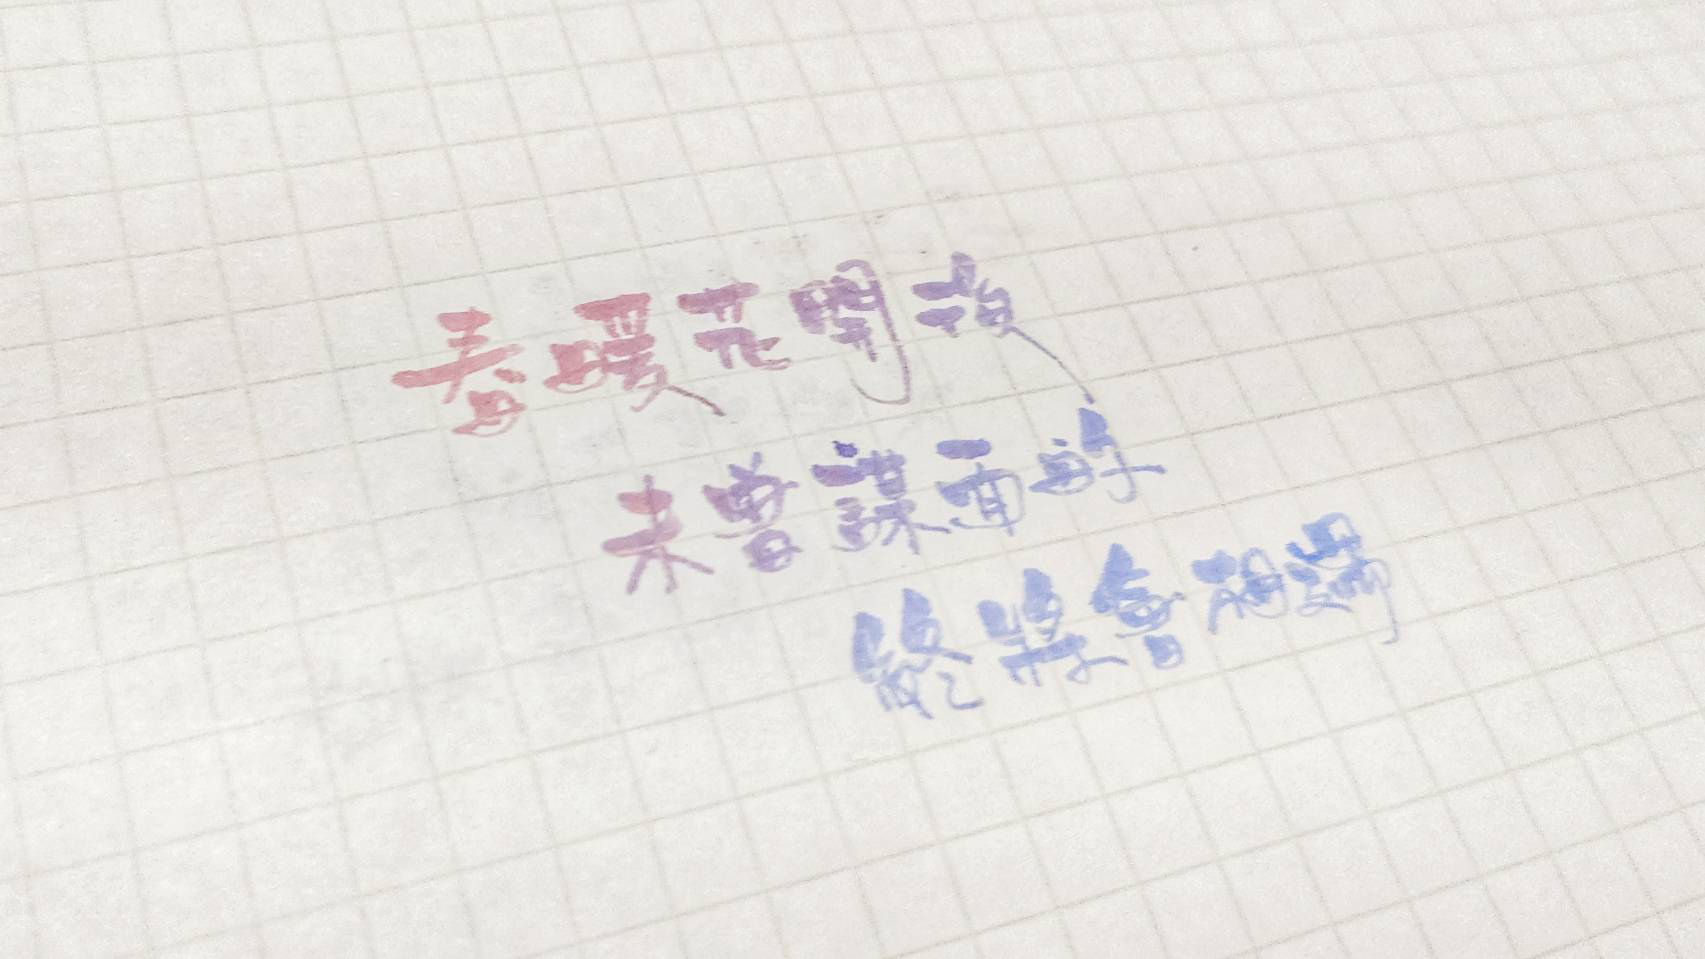 春暖花開後
未曾謀面的
終將會相遇